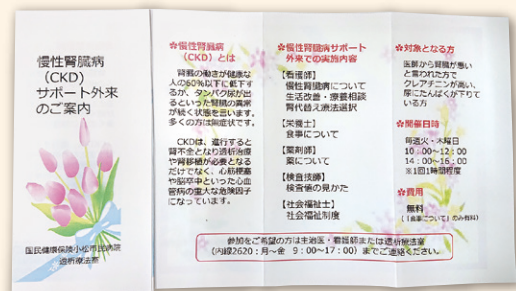 慢性腎臓病
（CKD）
サポート外来
のご案内
国民健康保険小松市民病院
透析療法室
✿慢性腎臓病
（CKD）とは
腎臓の働きが健康な
人の60％以下に低下す
るか、タンパク尿が出
るといった腎臓の異常
が続く状態を言います。
多くの方は無症状です。
CKDは、進行すると
腎不全となり透析治療
や腎移植が必要となる
だけでなく、心筋梗塞
や脳卒中といった心血
管病の重大な危険因子
になっています。
✿慢性腎臓病サポート
外来での実施内容
【看護師】
慢性腎臓病について
生活改善・療養相談
腎代替え療法選択
【栄養士】
食事について
【薬剤師】
薬について
【検査技師】
検査値の見かた
【社会福祉士】
社会福祉制度
✿対象となる方
医師から腎臓が悪い
と言われた方で
クレアチニンが高い、
尿にたんぱくが下りて
いる方
✿開催日時
毎週火・木曜日
10：00～12：00
14：00～16：00
※1回1時間程度
✿費用
無料
（「食事について」のみ有料）
参加をご希望の方は主治医・看護師または透析療法室
（内線2620：月～金　9：00～17：00）までご連絡ください。